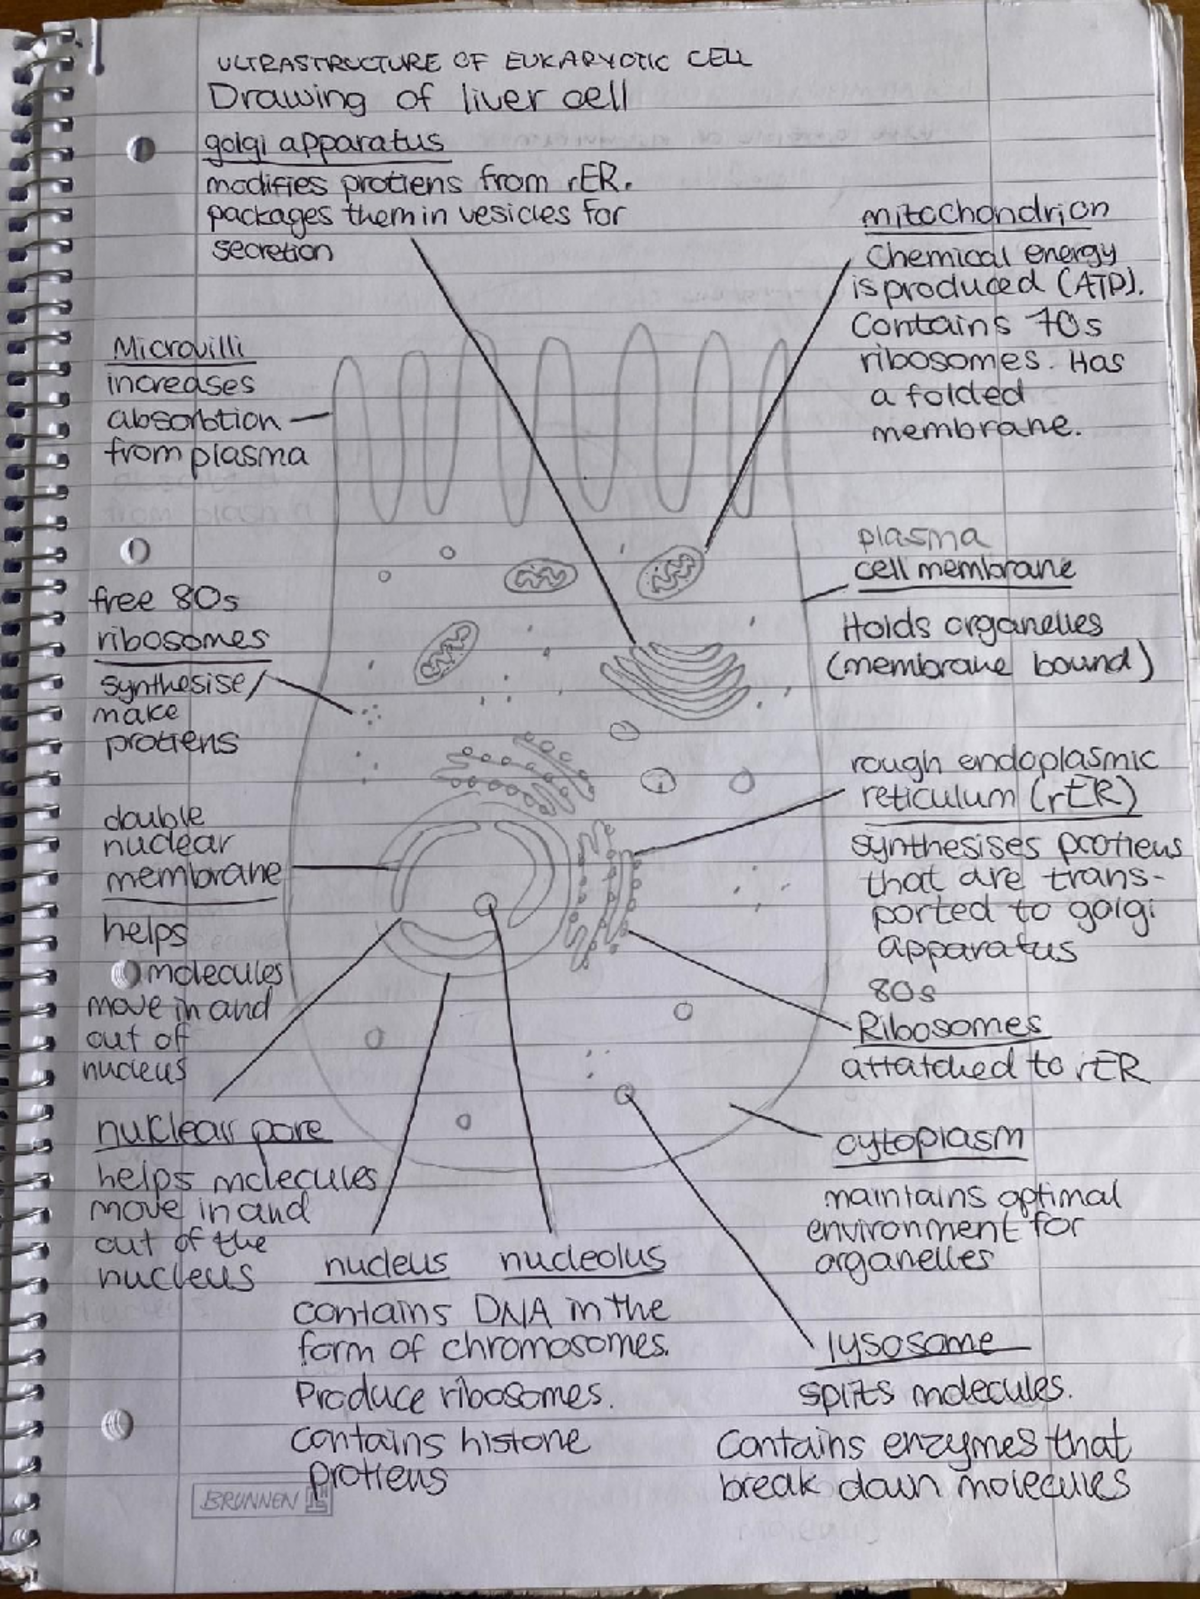 ULTRASTRUCTURE OF EUKARYOTIC CELL
Drawing of liver cell
golgi apparatus
modifies protiens from rER.
packages them in vesicles for
secretion
mitochondrion
Chemical energy
is produced (ATP).
Contains 70s
ribosomes. Has
a folded
membrane.
Microvilli
increases
absorbtion
from plasma
plasma
cell membrane
Holds organelles
(membrane bound)
free 80s
ribosomes
synthesise/
make
protiens
rough endoplasmic
reticulum (rER)
synthesises protiens
that are trans-
ported to golgi
apparatus
double
nuclear
membrane
helps
molecules
move in and
out of
nucleus
80s
Ribosomes
attatched to rER
nuclear pore
helps molecules
move in and
out of the
nucleus
cytoplasm
maintains optimal
environment for
organelles
nucleus nucleolus
contains DNA in the
form of chromosomes.
Produce ribosomes.
contains histone
protiens
lysosome
splits molecules.
Contains enzymes that
break down molecules
BRUNNEN